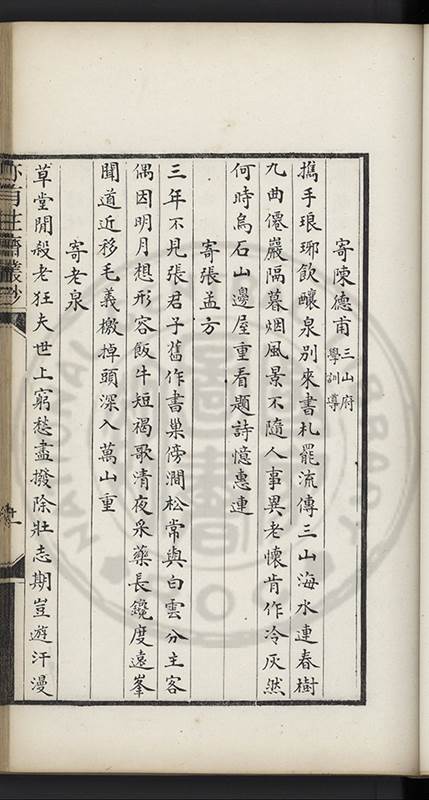 寄陳德甫三山府學訓導
攜手琅琊飲釀泉別來書札罷流傳三山海水連春樹
九曲僊巖隔暮烟風景不隨人事異老懷肯作冷灰然
何時烏石山邊屋重看題詩憶惠連
寄張孟方
三年不見張君子舊作書巢傍澗松常與白雲分主客
偶因明月想形容飯牛短褐歌清夜采藥長鑱度遠峯
聞道近移毛義檄掉頭深入萬山重
寄老泉
草堂閒殺老狂夫世上窮愁盡撥除壯志期豈遊汗漫
亦有生齋叢鈔